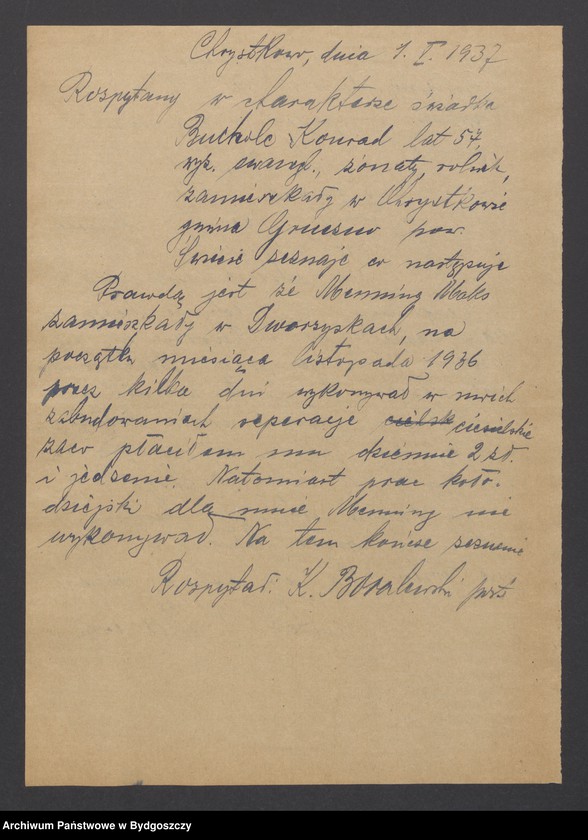 Chrystkowo, dnia 1. I. 1937
Rozpytany w charakterze świadka
Bucholc Konrad lat 57,
wyz. ewangl., żonaty, rolnik,
zamieszkały w Chrystkowie
gmina Gruczno pow.
Świecie zeznaje co następuje
Prawdą jest że Menning Maks
zamieszkały w Dworzyskach, na
początku miesiąca listopada 1936
przez kilka dni wykonywał w moich
zabudowaniach reperacje ciesielskie
zaco płaciłem mu dziennie 2 zł.
i jedzenie. Natomiast prac koło-
dziejski dla mnie Menning nie
wykonywał. Na tem koncze zeznanie
Rozpytał: K.
Archiwum Państwowe w Bydgoszczy